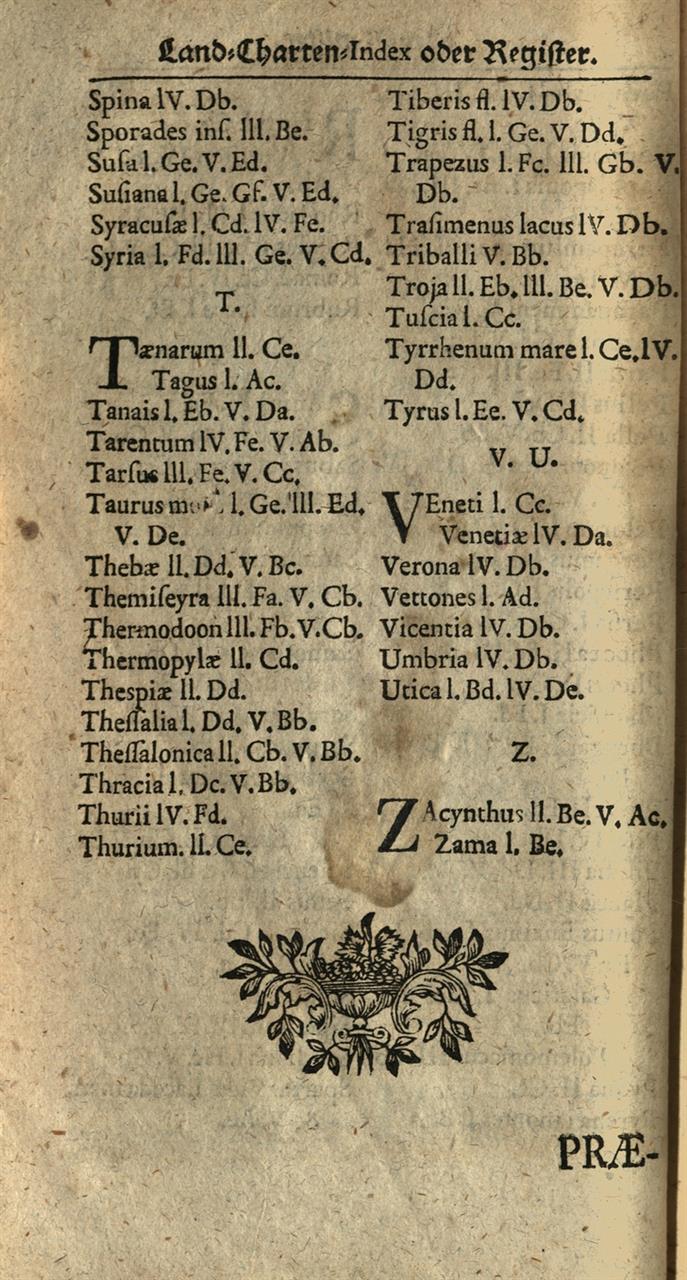 Land-Charten-Index oder Regiſter.
Spina lV. Db.
Sporades inſ. lII. Be.
Suſa l. Ge. V. Ed.
Suſiana l. Ge. Gf. V. Ed.
Syracuſæ l. Cd. lV. Fe.
Syria l. Fd. lII. Ge. V. Cd.
T.
Tænarum lI. Ce.
Tagus l. Ac.
Tanais l. Eb. V. Da.
Tarentum lV. Fe. V. Ab.
Tarſus lII. Fe. V. Cc.
Taurus l. Ge. lII. Ed.
V. De.
Thebæ lI. Dd. V. Bc.
Themiſeyra lII. Fa. V. Cb.
Thermodoon lII. Fb. V. Cb.
Thermopylæ lI. Cd.
Theſpiæ lI. Dd.
Theſſalia l. Dd. V. Bb.
Theſſalonica lI. Cb. V. Bb.
Thracia l. Dc. V. Bb.
Thurii lV. Fd.
Thurium. lI. Ce.
Tiberis fl. lV. Db.
Tigris fl. l. Ge. V. Dd.
Trapezus l. Fc. lII. Gb. V.
Db.
Traſimenus lacus lV. Db.
Triballi V. Bb.
Troja lI. Eb. lII. Be. V. Db.
Tuſcia l. Cc.
Tyrrhenum mare l. Ce. lV.
Dd.
Tyrus l. Ee. V. Cd.
V. U.
VEneti l. Cc.
Venetiæ lV. Da.
Verona lV. Db.
Vettones l. Ad.
Vicentia lV. Db.
Umbria lV. Db.
Utica l. Bd. lV. De.
Z.
ZAcynthus lI. Be. V. Ac.
Zama l. Be.
PRÆ-